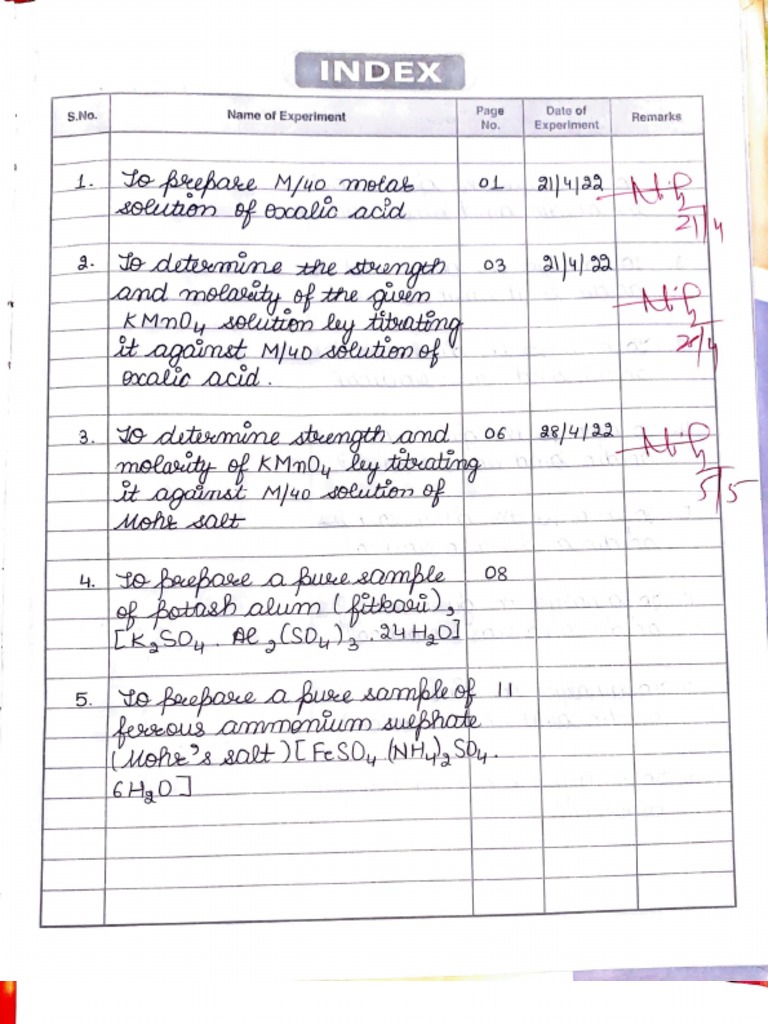 INDEX
S.No. Name of Experiment Page No. Date of Experiment Remarks
1. To prepare M/40 molar 01 21/4/22
solution of oxalic acid
21/4
2. To determine the strength 03 21/4/22
and molarity of the given
KMnO₄ solution by titrating
it against M/40 solution of
28/4
oxalic acid.
3. To determine strength and 06 28/4/22
molarity of KMnO₄ by titrating
it against M/40 solution of
5/5
Mohr salt
4. To prepare a pure sample 08
of potash alum (fitkari),
[K₂SO₄. Al₂(SO₄)₃. 24H₂O]
5. To prepare a pure sample of 11
ferrous ammonium sulphate
(Mohr's salt) [FeSO₄ (NH₄)₂SO₄.
6H₂O]